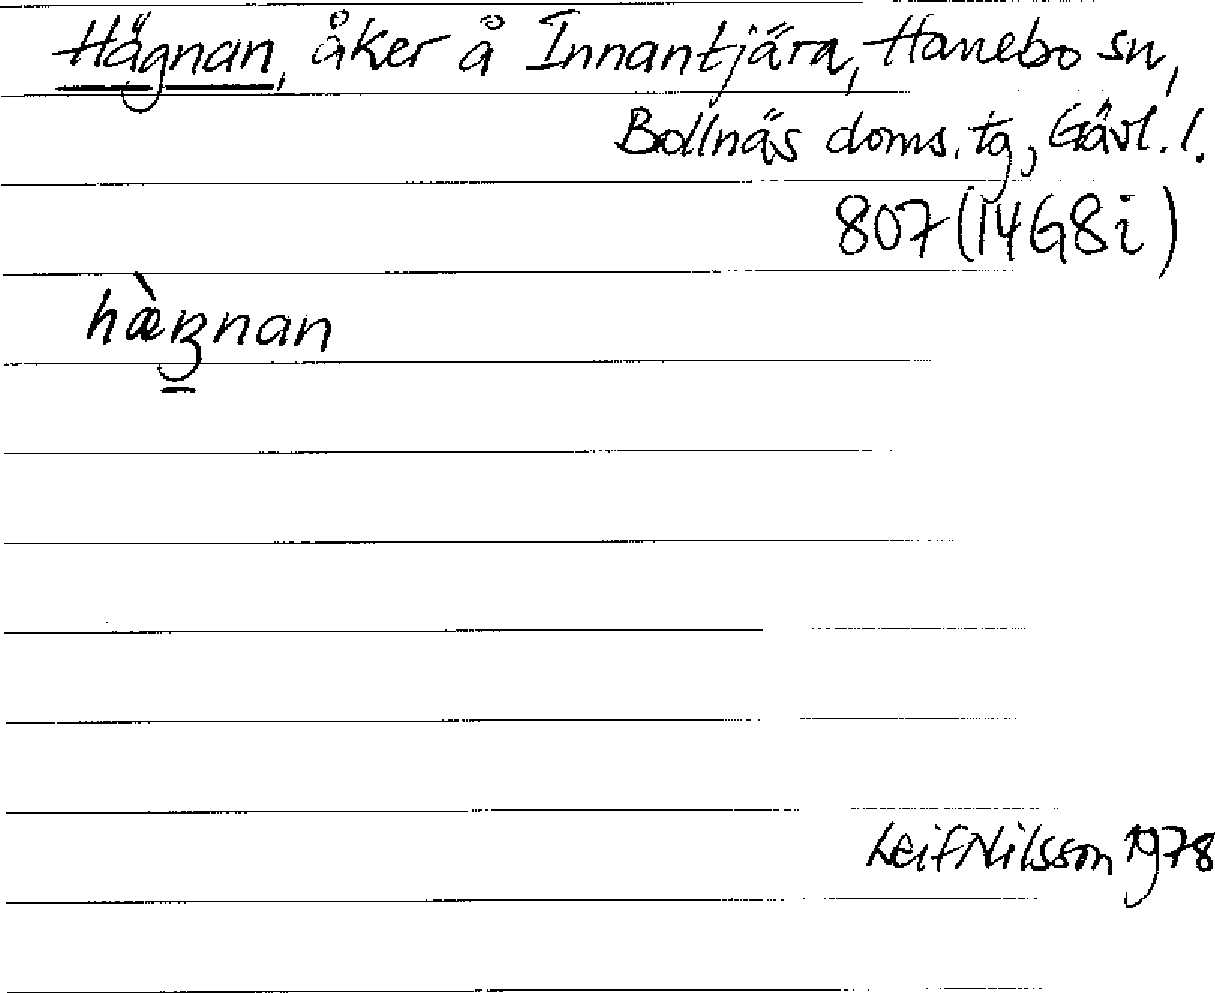 Hägnan, åker å Innantjära, Hanebo sn,
Bollnäs doms. tg, Gävl. l.
807 (14G8i)
Leif Nilsson 1978